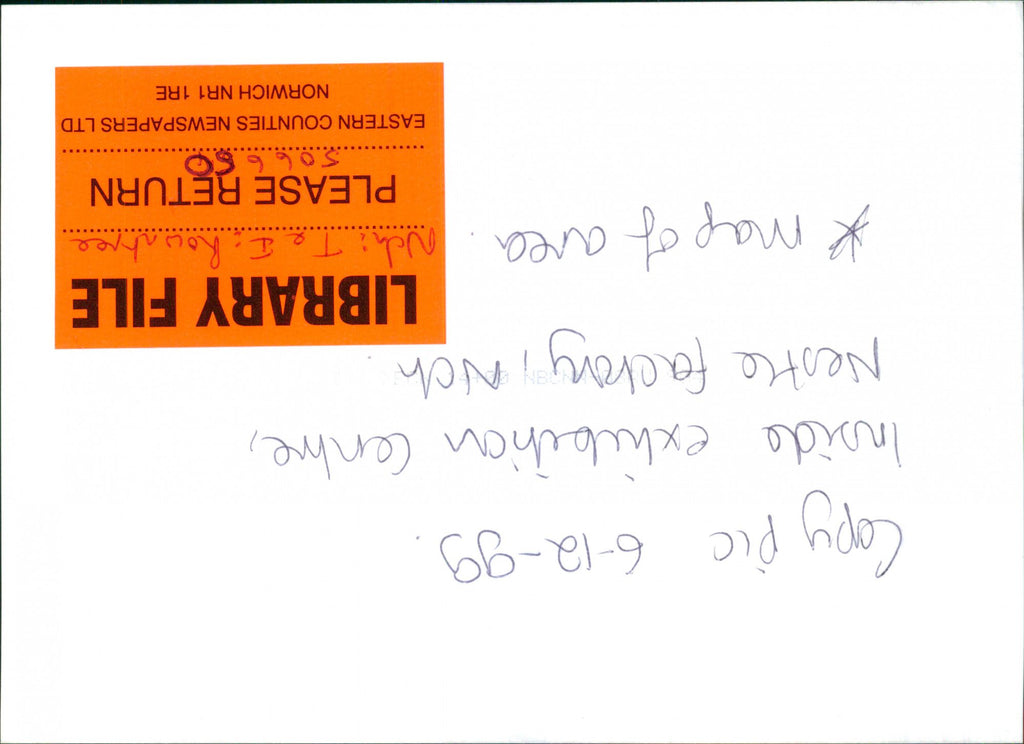 Copy pic 6-12-99.
Inside exhibition centre,
Nestle factory, Nch.
* Map of area.
LIBRARY FILE
Nch: T & I: Rowntree
PLEASE RETURN
506660
EASTERN COUNTIES NEWSPAPERS LTD
NORWICH NR1 1RE